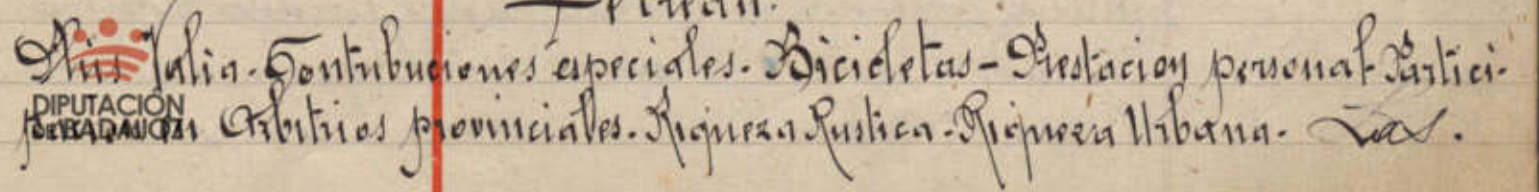 Plus Valia. Contribuciones especiales. Bicicletas - Prestacion personal. Partici-
pacion en Arbitrios provinciales. Riqueza Rustica - Riqueza Urbana. Las.
DIPUTACIÓN
DE BADAJOZ